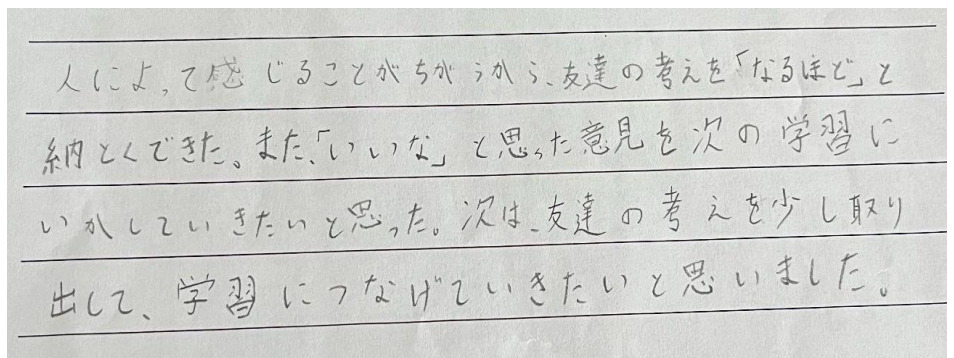 人によって感じることがちがうから、友達の考えを「なるほど」と
納とくできた。また、「いいな」と思った意見を次の学習に
いかしていきたいと思った。次は、友達の考えを少し取り
出して、学習につなげていきたいと思いました。